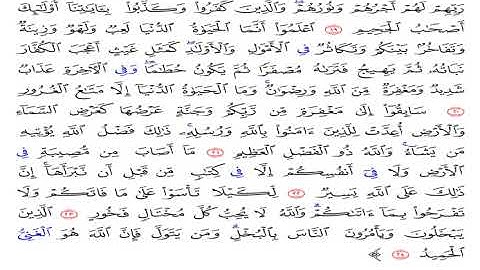 رَبِّهِمْ لَهُمْ أَجْرُهُمْ وَنُورُهُمْ وَالَّذِينَ كَفَرُوا وَكَذَّبُوا بِآيَاتِنَا أُولَٰئِكَ
أَصْحَابُ الْجَحِيمِ ١٩ اعْلَمُوا أَنَّمَا الْحَيَوٰةُ الدُّنْيَا لَعِبٌ وَلَهْوٌ وَزِينَةٌ
وَتَفَاخُرٌ بَيْنَكُمْ وَتَكَاثُرٌ فِي الْأَمْوَالِ وَالْأَوْلَٰدِ كَمَثَلِ غَيْثٍ أَعْجَبَ الْكُفَّارَ
نَبَاتُهُ ثُمَّ يَهِيجُ فَتَرَىٰهُ مُصْفَرًّا ثُمَّ يَكُونُ حُطَٰمًا وَفِي الْآخِرَةِ عَذَابٌ
شَدِيدٌ وَمَغْفِرَةٌ مِنَ اللَّهِ وَرِضْوَٰنٌ وَمَا الْحَيَوٰةُ الدُّنْيَا إِلَّا مَتَٰعُ الْغُرُورِ
٢٠ سَابِقُوا إِلَىٰ مَغْفِرَةٍ مِنْ رَبِّكُمْ وَجَنَّةٍ عَرْضُهَا كَعَرْضِ السَّمَاءِ
وَالْأَرْضِ أُعِدَّتْ لِلَّذِينَ ءَامَنُوا بِاللَّهِ وَرُسُلِهِ ذَٰلِكَ فَضْلُ اللَّهِ يُؤْتِيهِ
مَنْ يَشَاءُ وَاللَّهُ ذُو الْفَضْلِ الْعَظِيمِ ٢١ مَا أَصَابَ مِنْ مُصِيبَةٍ فِي
الْأَرْضِ وَلَا فِي أَنْفُسِكُمْ إِلَّا فِي كِتَٰبٍ مِنْ قَبْلِ أَنْ نَبْرَأَهَا إِنَّ
ذَٰلِكَ عَلَى اللَّهِ يَسِيرٌ ٢٢ لِكَيْلَا تَأْسَوْا عَلَىٰ مَا فَاتَكُمْ وَلَا
تَفْرَحُوا بِمَا ءَاتَىٰكُمْ وَاللَّهُ لَا يُحِبُّ كُلَّ مُخْتَالٍ فَخُورٍ ٢٣ الَّذِينَ
يَبْخَلُونَ وَيَأْمُرُونَ النَّاسَ بِالْبُخْلِ وَمَنْ يَتَوَلَّ فَإِنَّ اللَّهَ هُوَ الْغَنِيُّ
الْحَمِيدُ ٢٤ ﴾